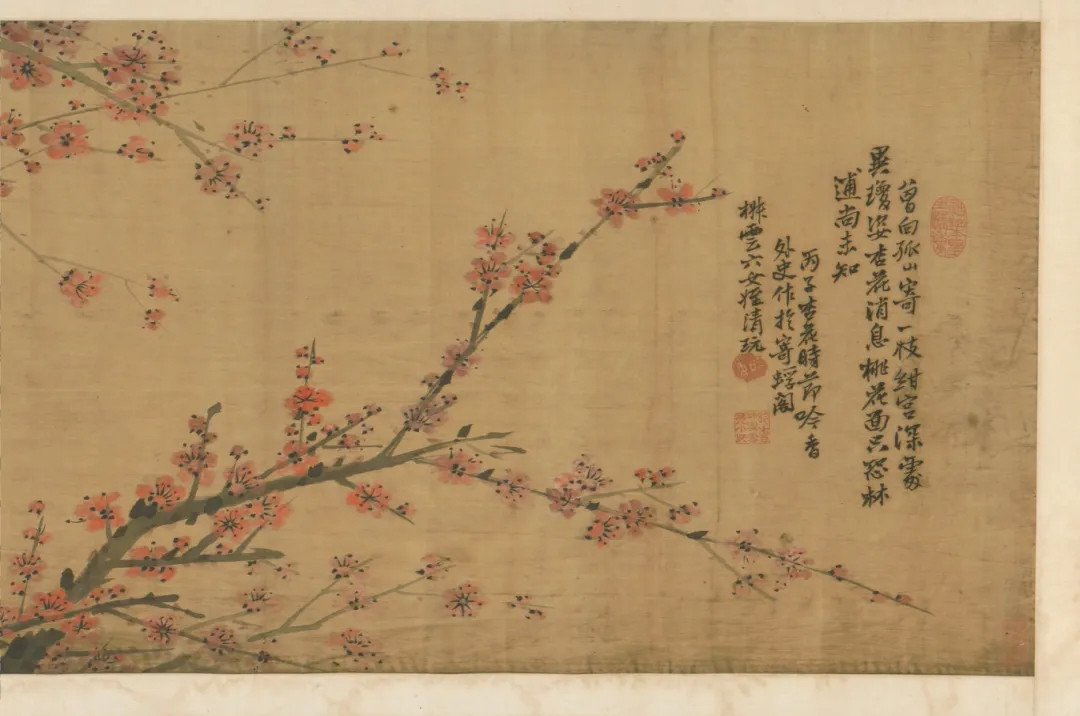 曾向孤山寄一枝紺宮深處
異瓊姿杏花消息桃花面只恐林
逋尚未知
丙子杏花時節吟香
外史作於寄蜉閣
雲六女姪清玩